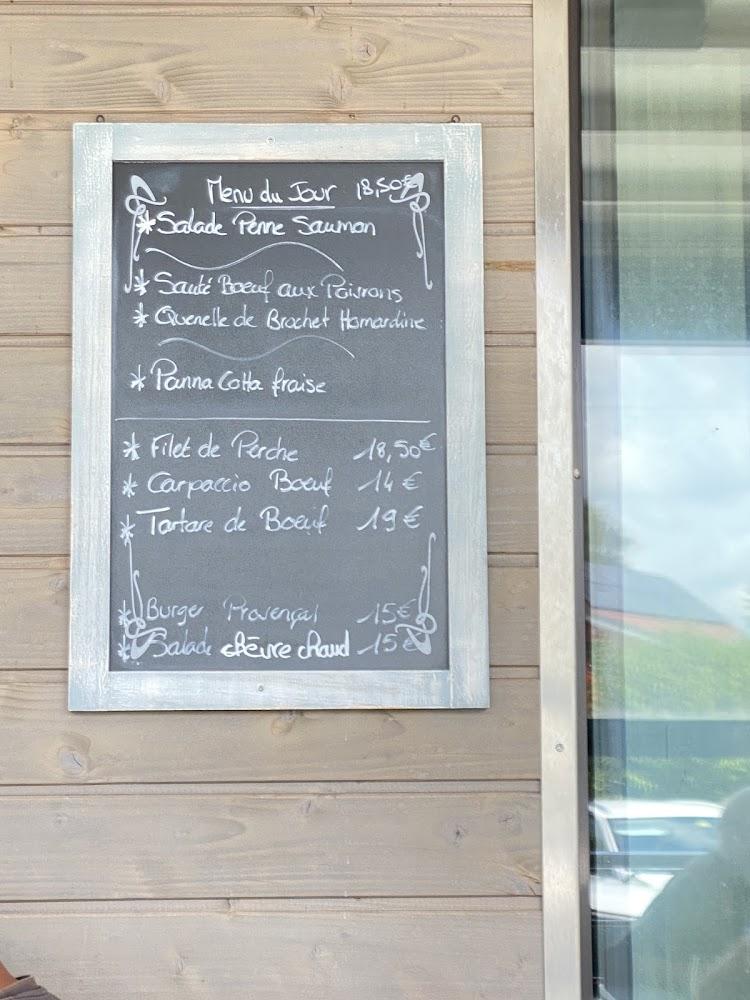 Menu du Jour 18,50€
* Salade Penne Saumon
* Sauté Boeuf aux Poivrons
* Quenelle de Brochet Homardine
* Panna Cotta fraise
* Filet de Perche 18,50€
* Carpaccio Boeuf 14€
* Tartare de Boeuf 19€
* Burger Provençal 15€
* Salade chèvre chaud 15€